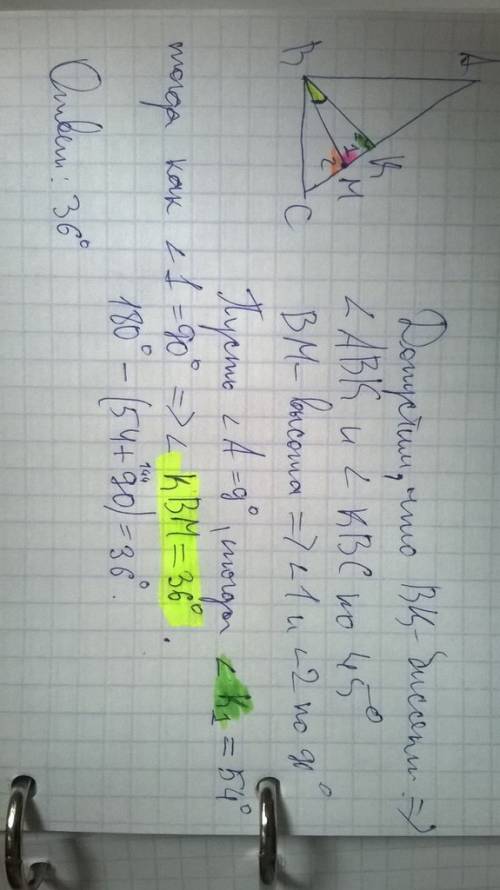 B
A
K
1
2
M
C
Допустим, что BK - биссектр. =>
∠ABK и ∠KBC по 45°
BM - высота => ∠1 и ∠2 по 90°
Пусть ∠A = 9°, тогда ∠K₁ = 54°
тогда как ∠1 = 90° => ∠KBM = 36°.
144
180° - (54 + 90) = 36°.
Ответ: 36°